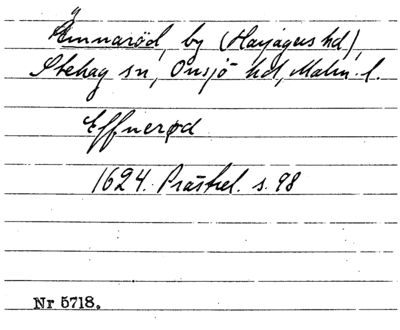 Ämnaröd, by (Harjagers hd),
Stehag sn, Onsjö hd, Malm. l.
Effnerød
1624. Prästrel. s. 98
Nr 5718.